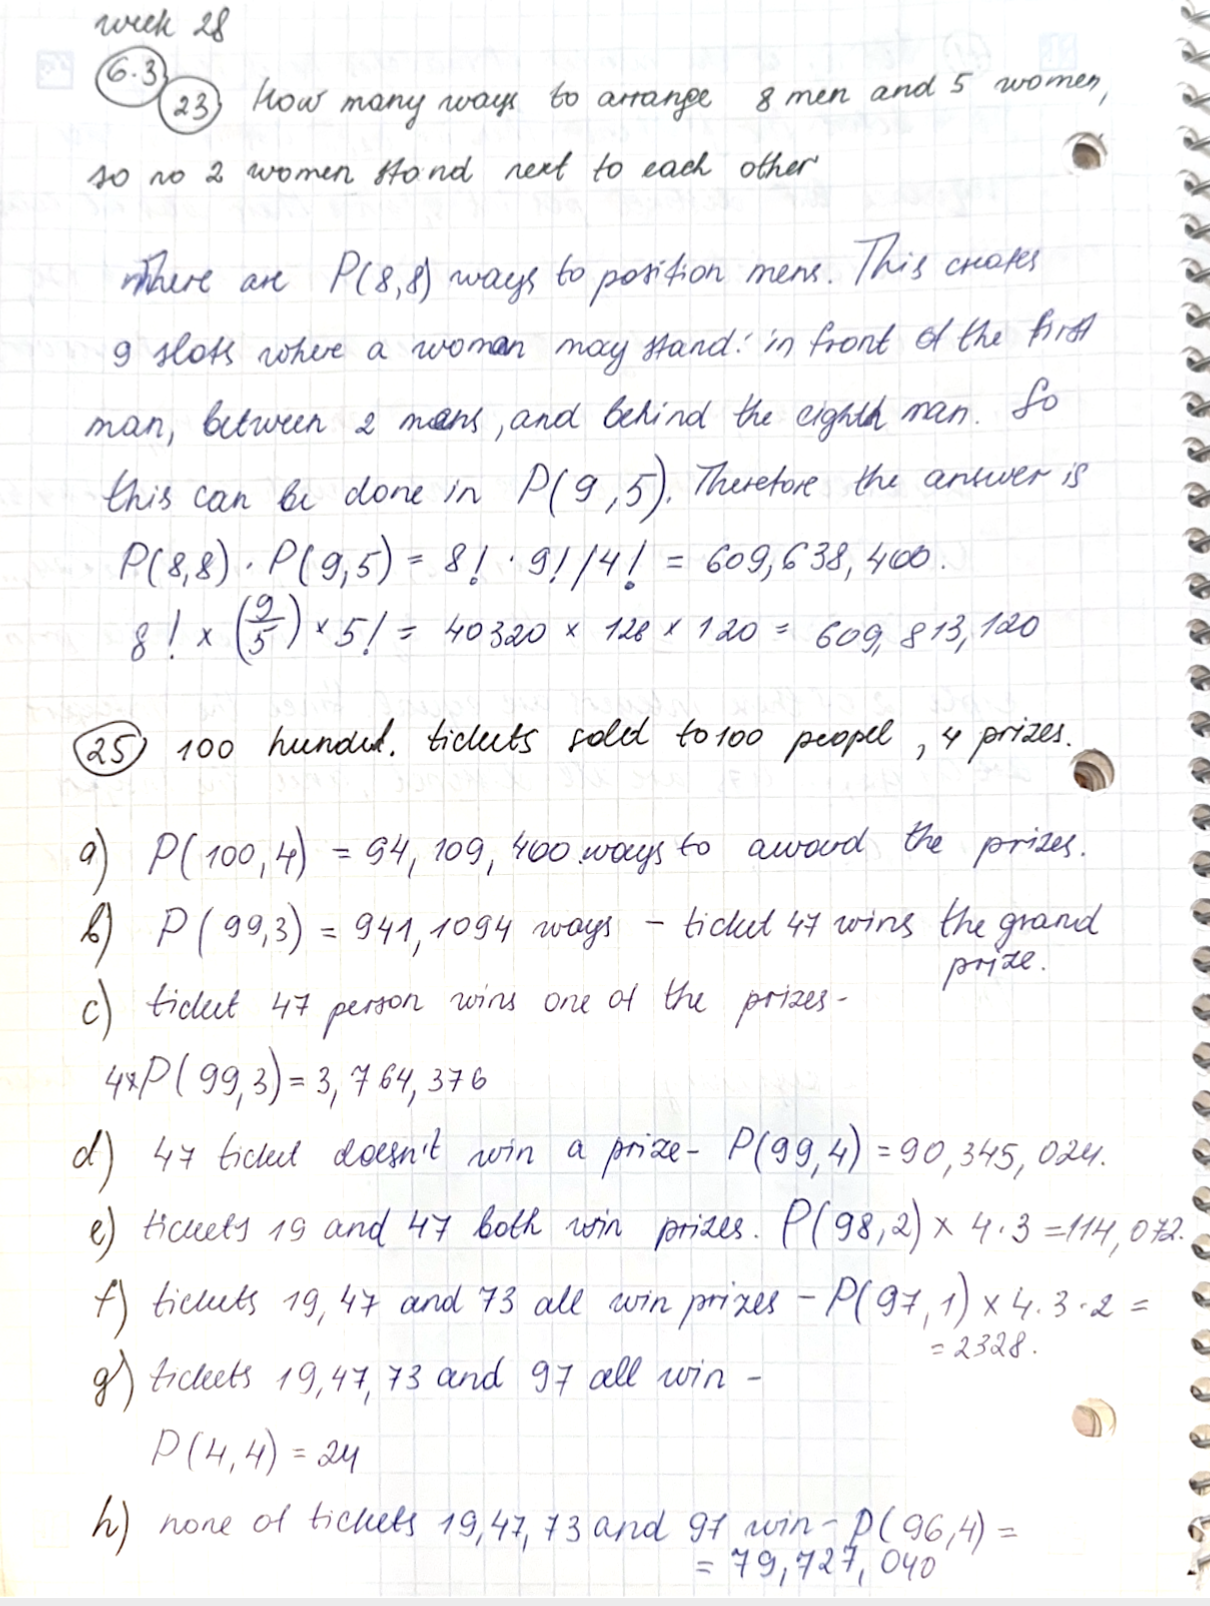 week 28
6.3
23 How many ways to arrange 8 men and 5 women,
so no 2 women stand next to each other
There are P(8,8) ways to position mens. This creates
9 slots where a woman may stand: in front of the first
man, between 2 mens, and behind the eighth man. So
this can be done in P(9,5). Therefore the answer is
P(8,8) · P(9,5) = 8! · 9!/4! = 609,638,400.
8! × (9/5) × 5! = 40320 × 126 × 120 = 609,813,120
25 100 hundrd. tickets sold to 100 peopel, 4 prizes.
a) P(100,4) = 94,109,400 ways to award the prizes.
b) P(99,3) = 941,1094 ways – ticket 47 wins the grand
prize.
c) ticket 47 person wins one of the prizes-
4×P(99,3) = 3,764,376
d) 47 ticket doesn't win a prize- P(99,4) = 90,345,024.
e) tickets 19 and 47 both win prizes. P(98,2) × 4·3 = 114,072.
f) tickets 19,47 and 73 all win prizes – P(97,1) × 4·3·2 =
= 2328.
g) tickets 19,47,73 and 97 all win –
P(4,4) = 24
h) none of tickets 19,47,73 and 97 win – P(96,4) =
= 79,727,040